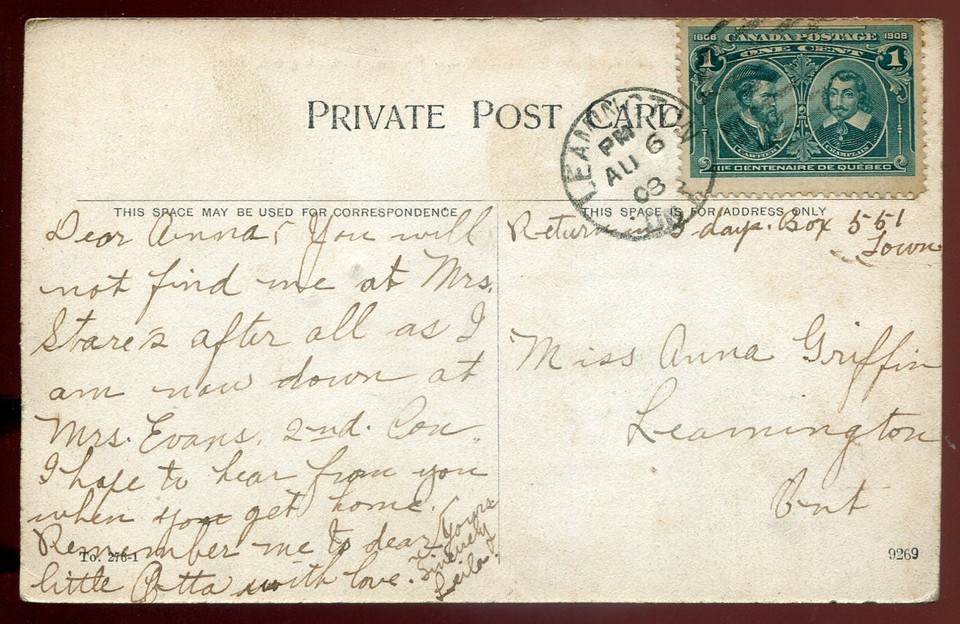 1608 CANADA POSTAGE 1908
1 ONE CENT 1
CARTIER CHAMPLAIN
IIIe CENTENAIRE DE QUÉBEC
LEAMINGTON
PM
AU 6
08
ONT
PRIVATE POST CARD
THIS SPACE MAY BE USED FOR CORRESPONDENCE
THIS SPACE IS FOR ADDRESS ONLY
Dear Anna, You will
not find me at Mrs.
Stare's after all as I
am now down at
Mrs. Evans, 2nd. Con.
I hope to hear from you
when you get home.
Remember me to dear
little Etta with love.
Yours
Sincerely
Leila.
To. 276-1
Return in 5 days. Box 551
Town
Miss Anna Griffin
Leamington
Ont
9269